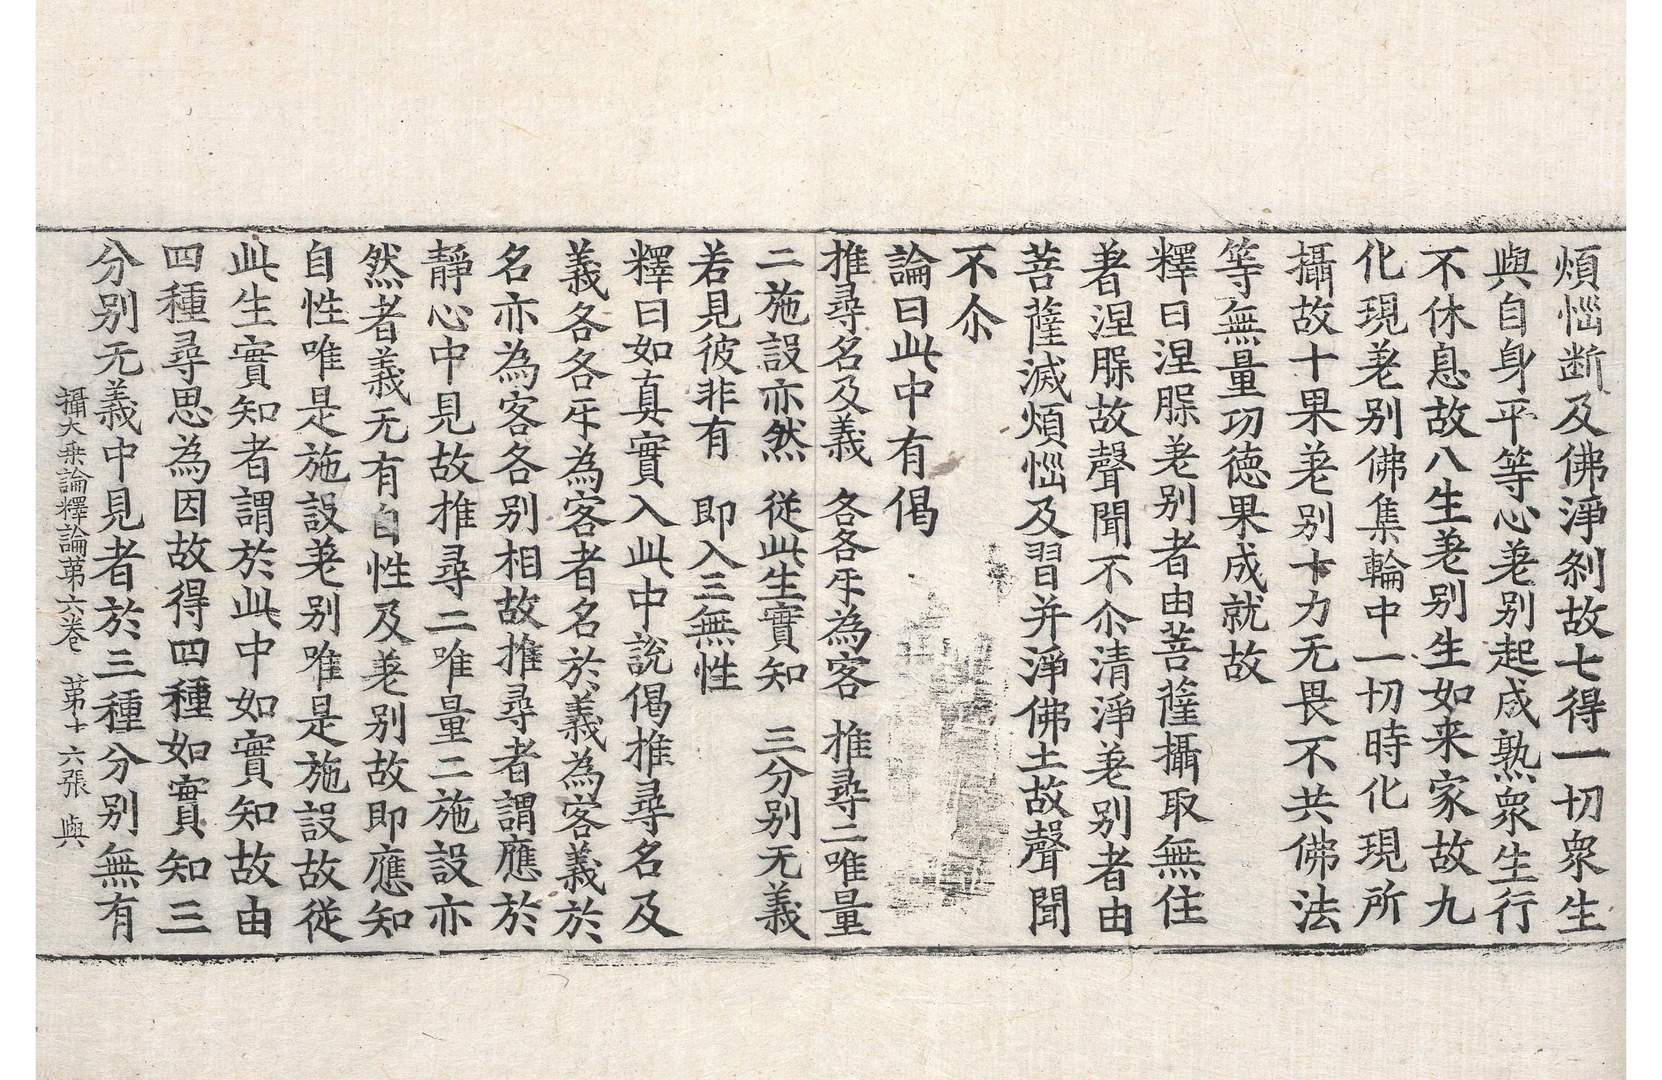 煩惱断及佛淨刹故七得一切衆生
與自身平等心差别起成熟衆生行
不休息故八生差别生如来家故九
化現差别佛集輪中一切時化現所
攝故十果差别十力无畏不共佛法
等無量功德果成就故
釋曰涅槃差别者由菩薩攝取無住
著涅槃故聲聞不尒清淨差别者由
菩薩滅煩惱及習并淨佛土故聲聞
不尒
論曰此中有偈
推尋名及義　各各㸦為客　推尋二唯量
二施設亦然　從此生實知　三分别无義
若見彼非有　即入三無性
釋曰如真實入此中說偈推尋名及
義各各㸦為客者名於義為客義於
名亦為客各别相故推尋者謂應於
靜心中見故推尋二唯量二施設亦
然者義无有自性及差别故即應知
自性唯是施設差别唯是施設故從
此生實知者謂於此中如實知故由
四種尋思為因故得四種如實知三
分别无義中見者於三種分别無有
攝大乘論釋論第六卷　第十六張　與